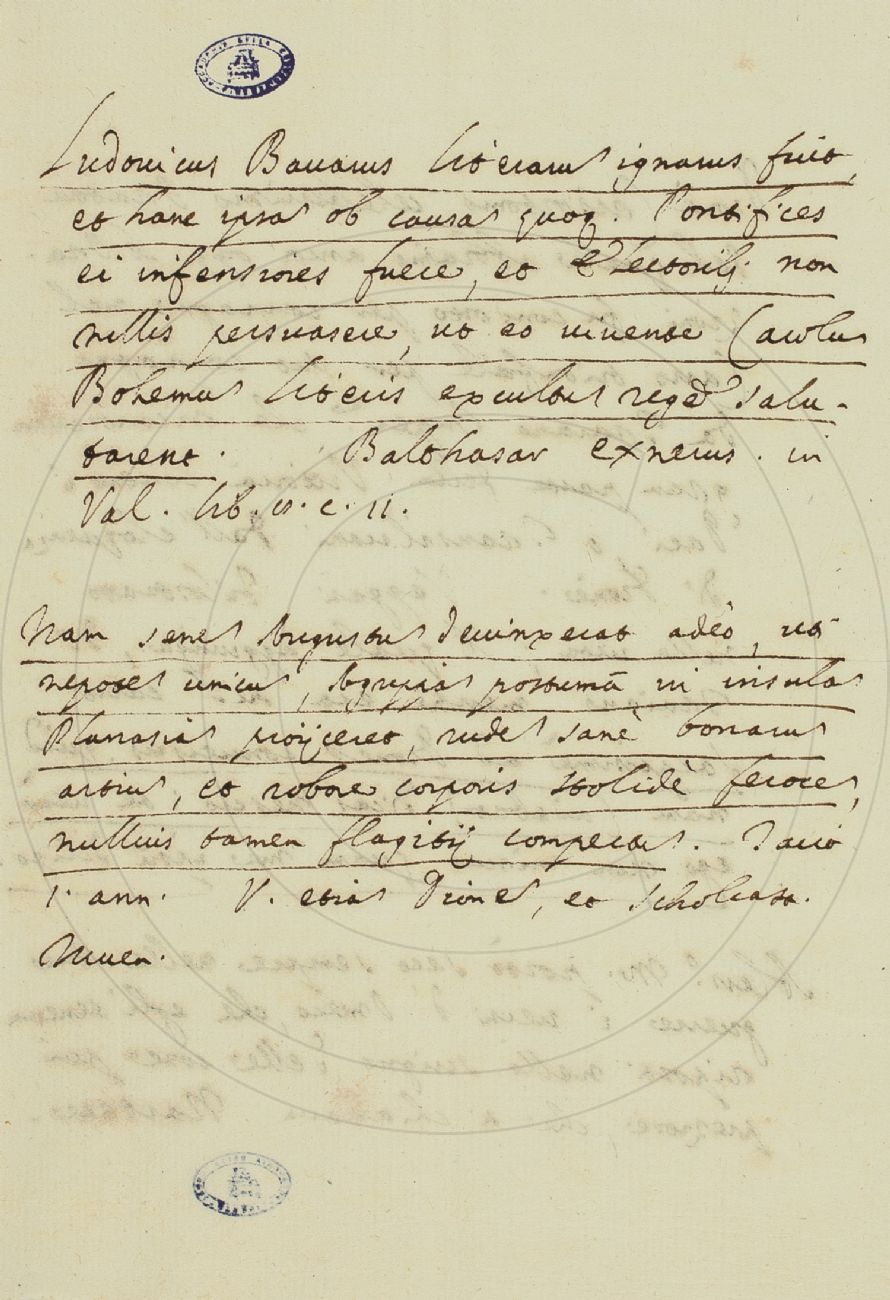 Ludovicus Bavarus literarum ignarus fuit,
et hanc ipsam ob causam quoq. Pontifices
ei infensiores fuere, et Electorib. non
nullis persuasere, ut eo vivente Carolum
Bohemum literis excultum regem salu-
tarent. Balthasar exnerus. in
Val. lib. c. 11.
Nam senem Augustum devinxerat adèo, uti
nepotem unicum, Agrippam postumū in insulam
Planasiam proijceret, rudem sanè bonarum
artium, et robore corporis stolidè ferocem,
nullius tamen flagitij compertum. Tacit
1. ann. V. etiam Dionem, et scholiast.
Iuven.